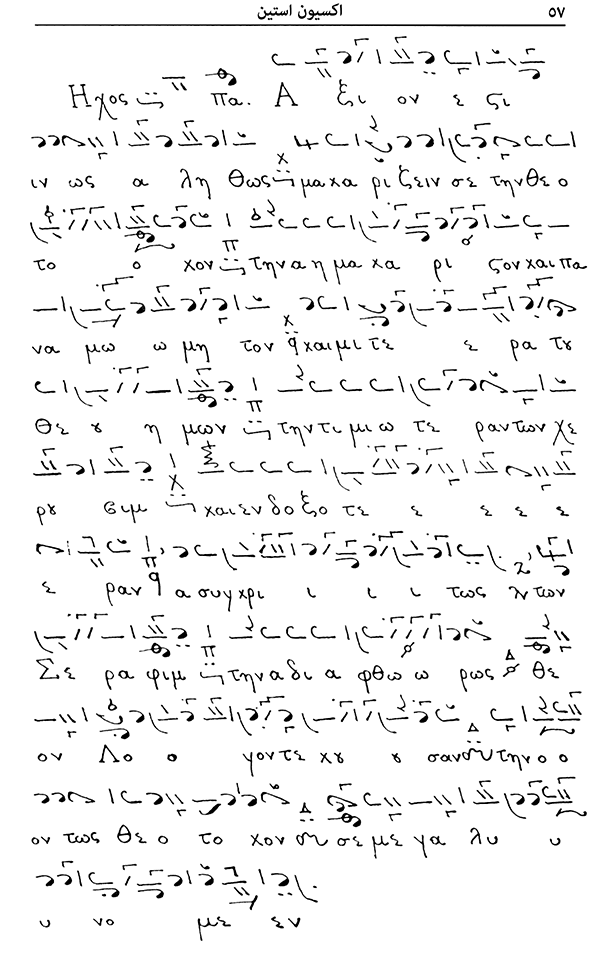 اكسيون استين ٥٧
Ηχος πα. Α ξι ον ε ςι
ιν ως α λη θως μα χα ρι ζειν σε την θε ο
το ο χον την α η μα χα ρι ςον χαι πα
να μω ω μη τον χαι μι τε ε ρα τȣ
θε ȣ η μων την τι μι ω τε ραν των χε
ρȣ σιμ χαι εν δο ξο τε ε ε ε ε
ε ραν α συγ χρι ι ι ι τως των
Σε ρα φιμ την α δι α φθω ω ρως θε
ον Λο ο γον τε χȣ ȣ σαν την ο ο
ον τως θε ο το χον σε με γα λυ υ
υ νο με εν